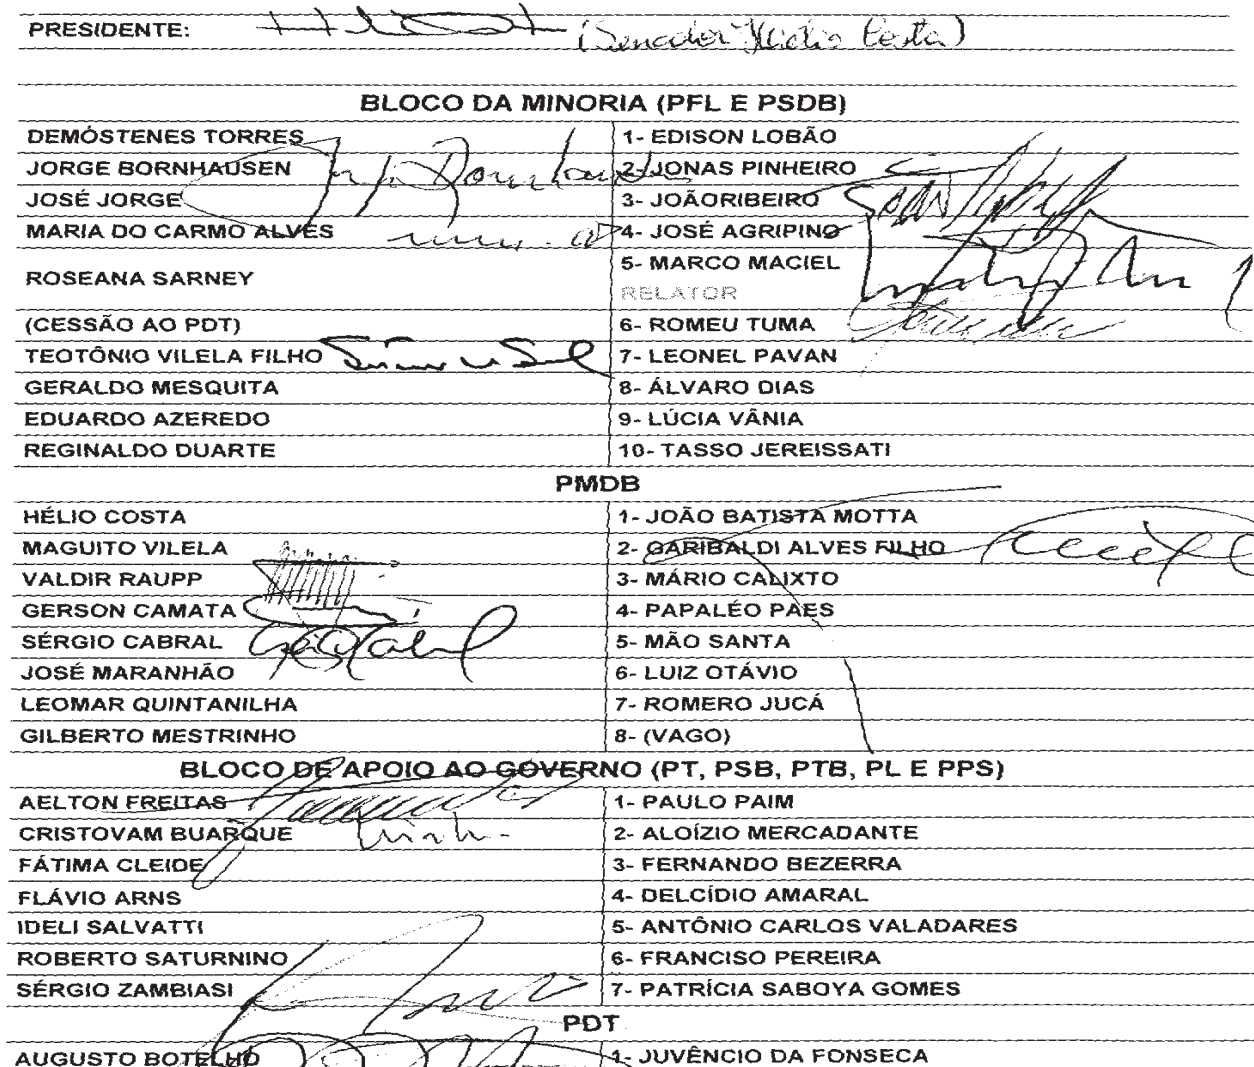 PRESIDENTE: (Senador Hélio Costa)
BLOCO DA MINORIA (PFL E PSDB)
DEMÓSTENES TORRES 1- EDISON LOBÃO
JORGE BORNHAUSEN 2- JONAS PINHEIRO
JOSÉ JORGE 3- JOÃORIBEIRO
MARIA DO CARMO ALVES 4- JOSÉ AGRIPINO
ROSEANA SARNEY 5- MARCO MACIEL
RELATOR
(CESSÃO AO PDT) 6- ROMEU TUMA
TEOTÔNIO VILELA FILHO 7- LEONEL PAVAN
GERALDO MESQUITA 8- ÁLVARO DIAS
EDUARDO AZEREDO 9- LÚCIA VÂNIA
REGINALDO DUARTE 10- TASSO JEREISSATI
PMDB
HÉLIO COSTA 1- JOÃO BATISTA MOTTA
MAGUITO VILELA 2- GARIBALDI ALVES FILHO
VALDIR RAUPP 3- MÁRIO CALIXTO
GERSON CAMATA 4- PAPALÉO PAES
SÉRGIO CABRAL 5- MÃO SANTA
JOSÉ MARANHÃO 6- LUIZ OTÁVIO
LEOMAR QUINTANILHA 7- ROMERO JUCÁ
GILBERTO MESTRINHO 8- (VAGO)
BLOCO DE APOIO AO GOVERNO (PT, PSB, PTB, PL E PPS)
AELTON FREITAS 1- PAULO PAIM
CRISTOVAM BUARQUE 2- ALOÍZIO MERCADANTE
FÁTIMA CLEIDE 3- FERNANDO BEZERRA
FLÁVIO ARNS 4- DELCÍDIO AMARAL
IDELI SALVATTI 5- ANTÔNIO CARLOS VALADARES
ROBERTO SATURNINO 6- FRANCISO PEREIRA
SÉRGIO ZAMBIASI 7- PATRÍCIA SABOYA GOMES
PDT
AUGUSTO BOTELHO 1- JUVÊNCIO DA FONSECA